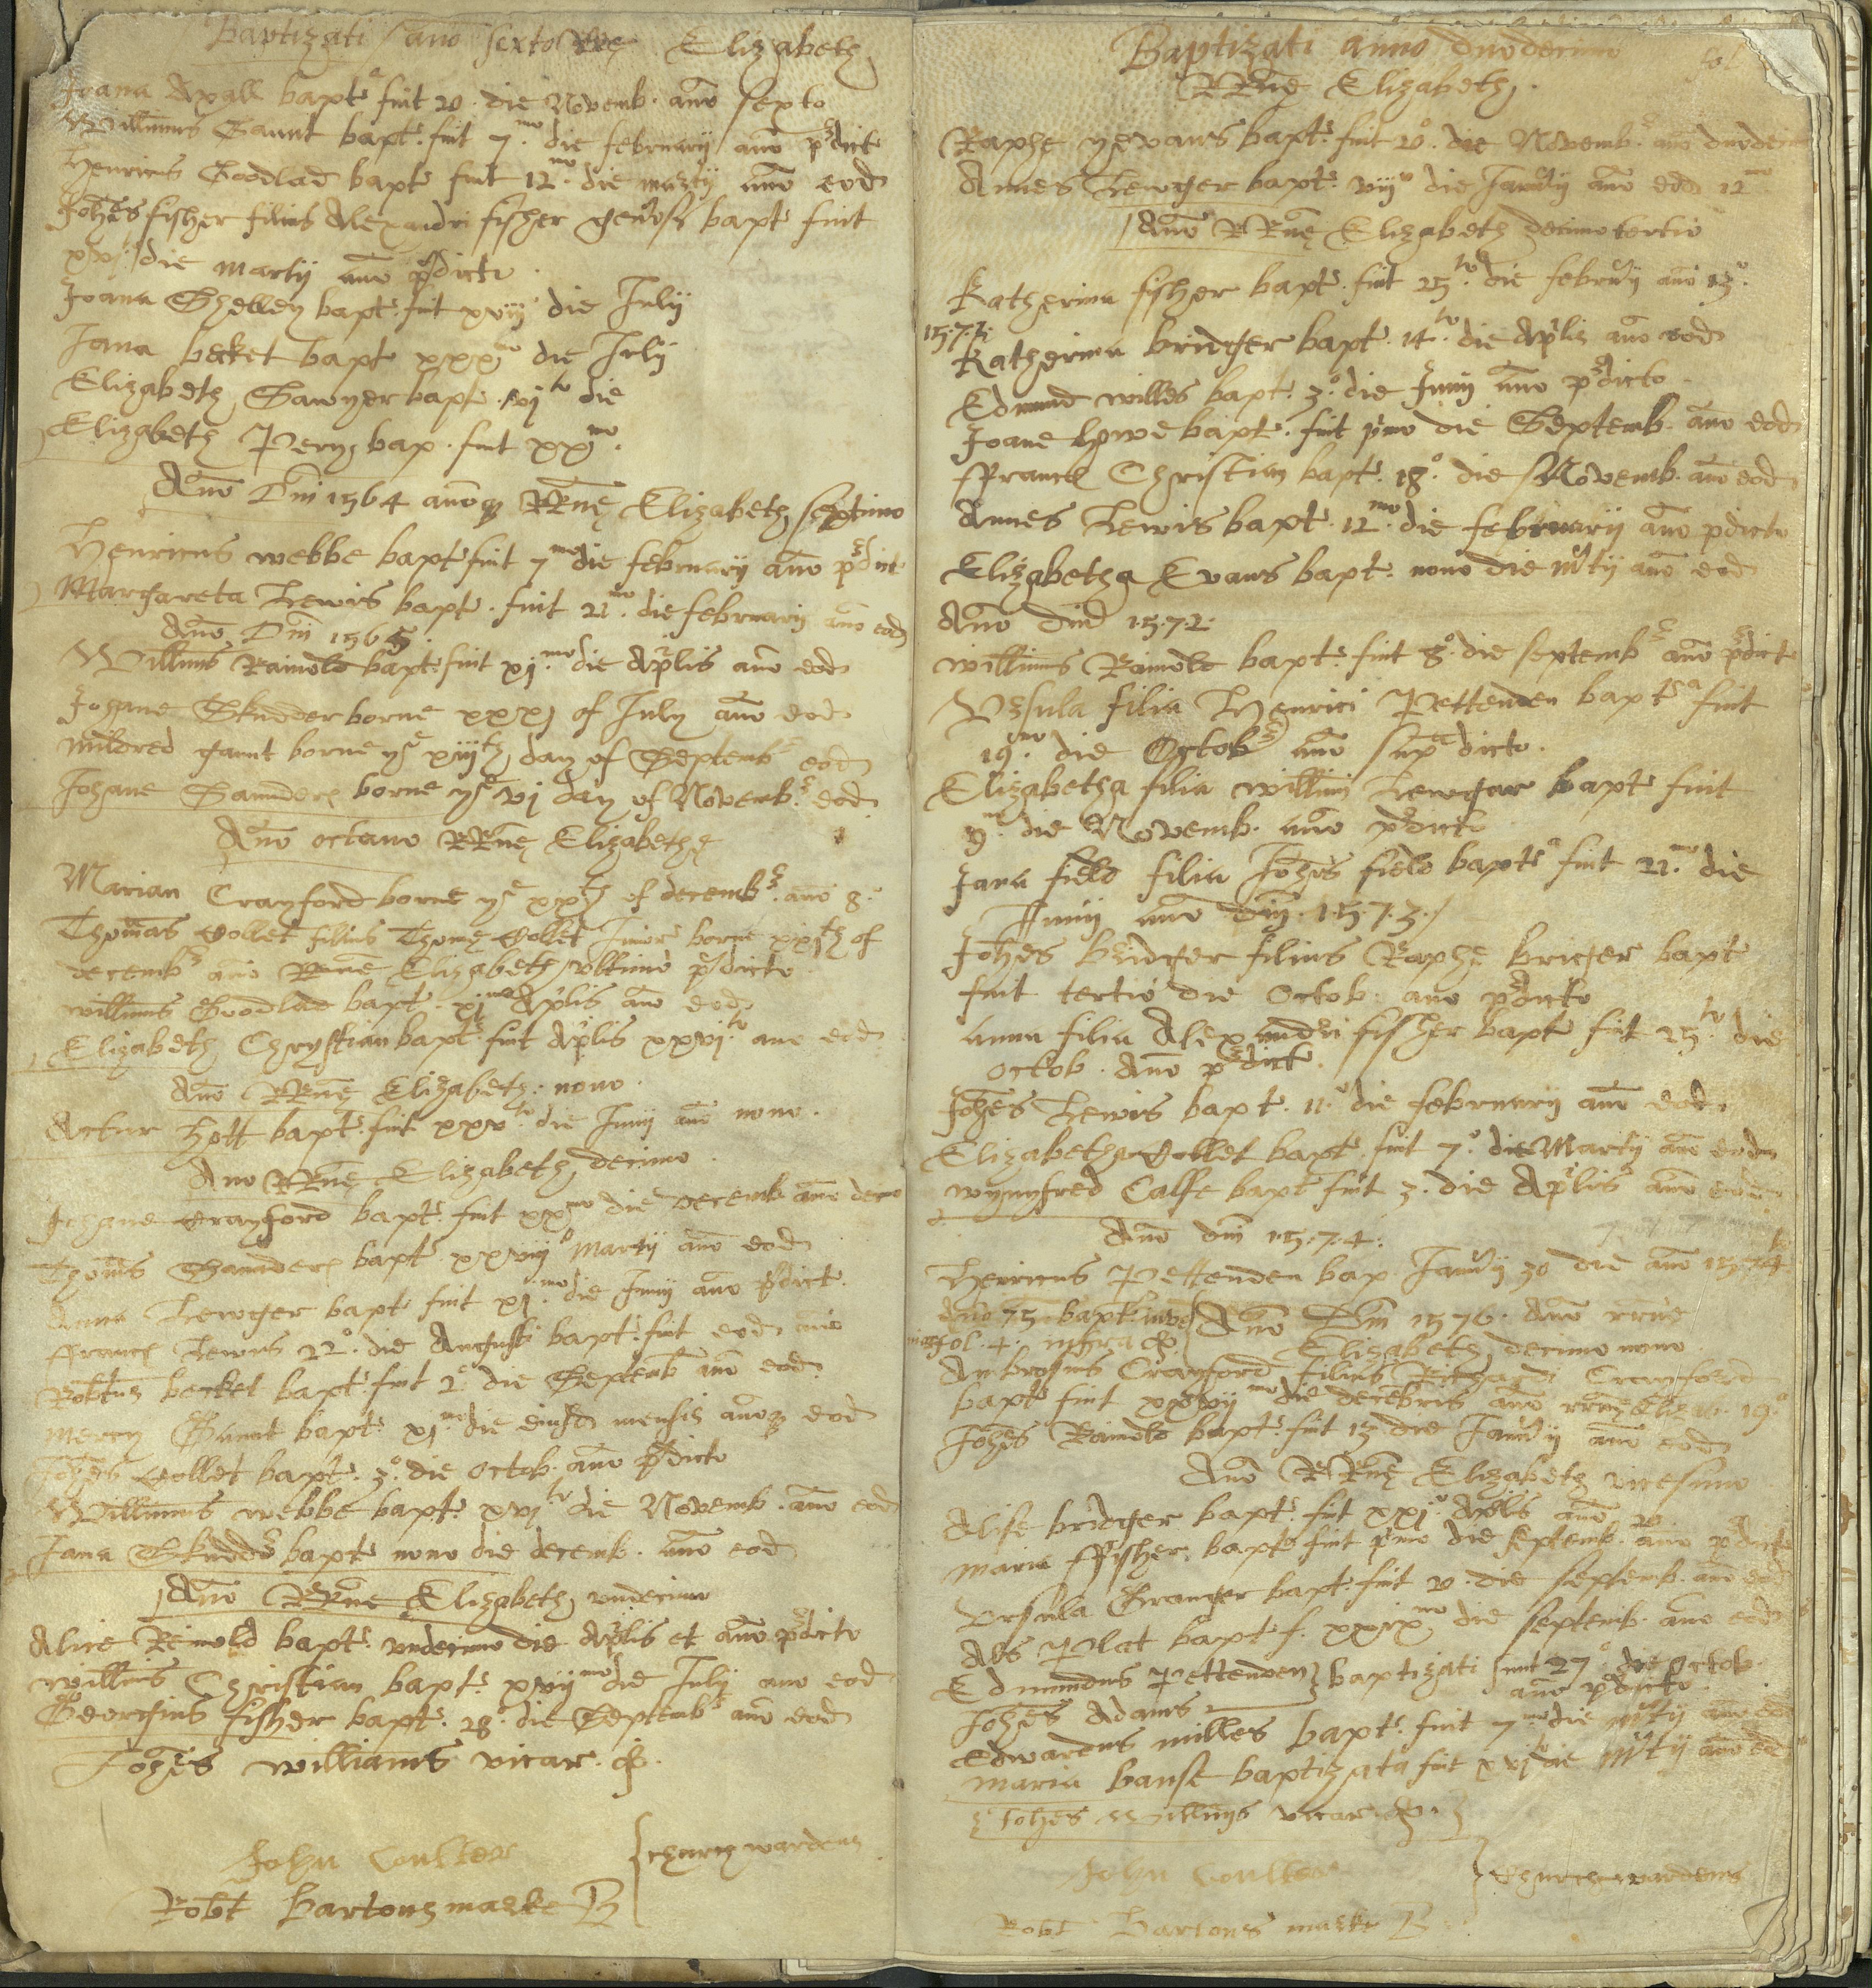 Baptizati anno sexto RRne Elizabeth
Joana Axall bapt fuit 20 die Novemb. ano sexto
Willimus Gaunt bapt. fuit 7mo. die february ano pdict
Henricus Goodlad bapt fuit 12mo. die marty ano eod
Johes fisher filius Alexandri fisher genosi bapt fuit
xvj. die marty ano pdicto.
Joana Shelley bapt. fuit xviij die July
Jana becket bapt xxxmo die July
Elizabeth Sawyer bapt. vjto die
Elizabeth Pery bap. fuit xxmo.
Ano Dni 1564 anoq RRne Elizabeth septimo
Henricus webbe bapt fuit 7mo die february ano pdict
Margareta Lewis bapt. fuit 21mo. die february ano eod
Ano Dni 1565.
Willimus Rainold bapt fuit xjmo. die Aplis ano eod
Johane Skudder borne xxxj of July ano eod
Mildred gaunt borne ye xiijth day of Septemb eod
Johane Saunders borne ye vj day of Novemb. eod.
Ano octavo RRne Elizabethe
Marian Crayford borne ye xixth of decemb. ano 8.
Thomas Collet filius Thome Collet Junior borne xxjth of
decemb ano RRne Elizabeth ultimo pdicto
willimus Goodlad bapt. xjmo Aplis ano eod
Elizabeth Chrystian bapt. fuit Aplis xxvj.to ano eod
Ano RRne Elizabeth: nono.
Actur Hott bapt. fuit xxvto. die Juny ano nono.
Ano RRne Elizabeth decimo.
Johane Crayford bapt. fuit xxmo die decemb ano deco
Thomas Saunders bapt. xxviijo Marty ano eod
Anna Lewger bapt fuit xj.mo die Juny ano pdict.
Francis Lewis 22o. die Augusti bapt. fuit eod ano
Robtus becket bapt. fuit 2o die Septemb ano eod.
mercy Gaunt bapt. xj.mo die eiusd mensis anoq eod
Johes Collet bapt. 3o. die octob. ano pdicto
Willimus webbe bapt. xvj.to die Novemb. ano eod
Jana Skudder bapt nono die decemb. ano eod
Ano RRne Elizabeth undecimo
Alice Reinold bapt. undecimo die Aplis et ano pdicto
willimus Christian bapt. xvijmo die July ano eod
Georgius fisher bapt. 28. die Septemb ano eod
Johes williams vicar.
John Coulter
Robt Bartons marke B
churchwardens
Baptizati anno duodecimo
fol
RRne Elizabeth.
Raphe yevans bapt. fuit 20o. die Novemb. ano duodeci
Annes Lewger bapt. viijo die January ano eod 12mo
Ano RRne Elizabeth decimo tertio
Katherina fisher bapt. fuit 25.to die february ano 13o.
1571.
Katherina bridger bapt. 14to. die Aplis ano eod
Edmund willes bapt. 3o. die Juny ano pdicto.
Joane Lowe bapt. fuit pmo die Septemb. ano eod
ffrancis Christian bapt. 18o. die Novemb. ano eod
Annes Lewis bapt. 12mo. die february ano pdicto
Elizabetha Evans bapt. nono die mrty ano eod
Ano dni 1572.
willimus Rainold bapt. fuit 8o. die septemb ano pdict
Ursula filia Henrici Pettenden bapta fuit
19mo. die Octob ano supdicto.
Elizabetha filia willimi Lewgar bapt fuit
9. die Novemb. ano pdicto
Jana field filia Johes field bapta fuit 21.mo die
Juny ano dni. 1573.
Johes bridger filius Raphe bridger bapt
fuit tertio die Octob. ano pdicto
Anna filia Alexandri fisher bapt fuit 25.to die
octob. Ano pdict.
Johes Lewis bapt. 11.o die february ano eod
Elizabetha Collet bapt. fuit 7o. die Marty ano eod
wynyfred Calfe bapt fuit 3. die Aplis ano eod
Ano dni 1574.
Henricus Pettenden bap January 30 die ano 1574
Ano 75 bapt
fol. 4. infra
Ano Dni 1576. Ano rrne
Elizabeth decimo nono.
Ambrosius Crayford filius Richardi Crayford
bapt fuit xxvijmo die decebris ano rrne Eliz. 19.o
Johes Rainold bapt. fuit 13 die January ano eod
Ano RRne Elizabeth vicesimo
Alise bridger bapt. fuit xxj.o Aplis ano 20.
maria ffisher bapt fuit pmo die septemb. ano pdicto
Ursula Granger bapt. fuit 20. die septemb. ano eod
Als Plat bapt f. xxixmo die septemb. ano eod
Edmundus Pettenden } baptizati sunt 27o. die Octob.
Johes Adams
ano pdicto.
Edwardus milles bapt. fuit 7.mo die mrty ano eod
maria banse baptizata fuit xvjto die mrty ano eod
Johes Willimus vicar
John Coulter
Robt Bartons marke B
Churchwardens